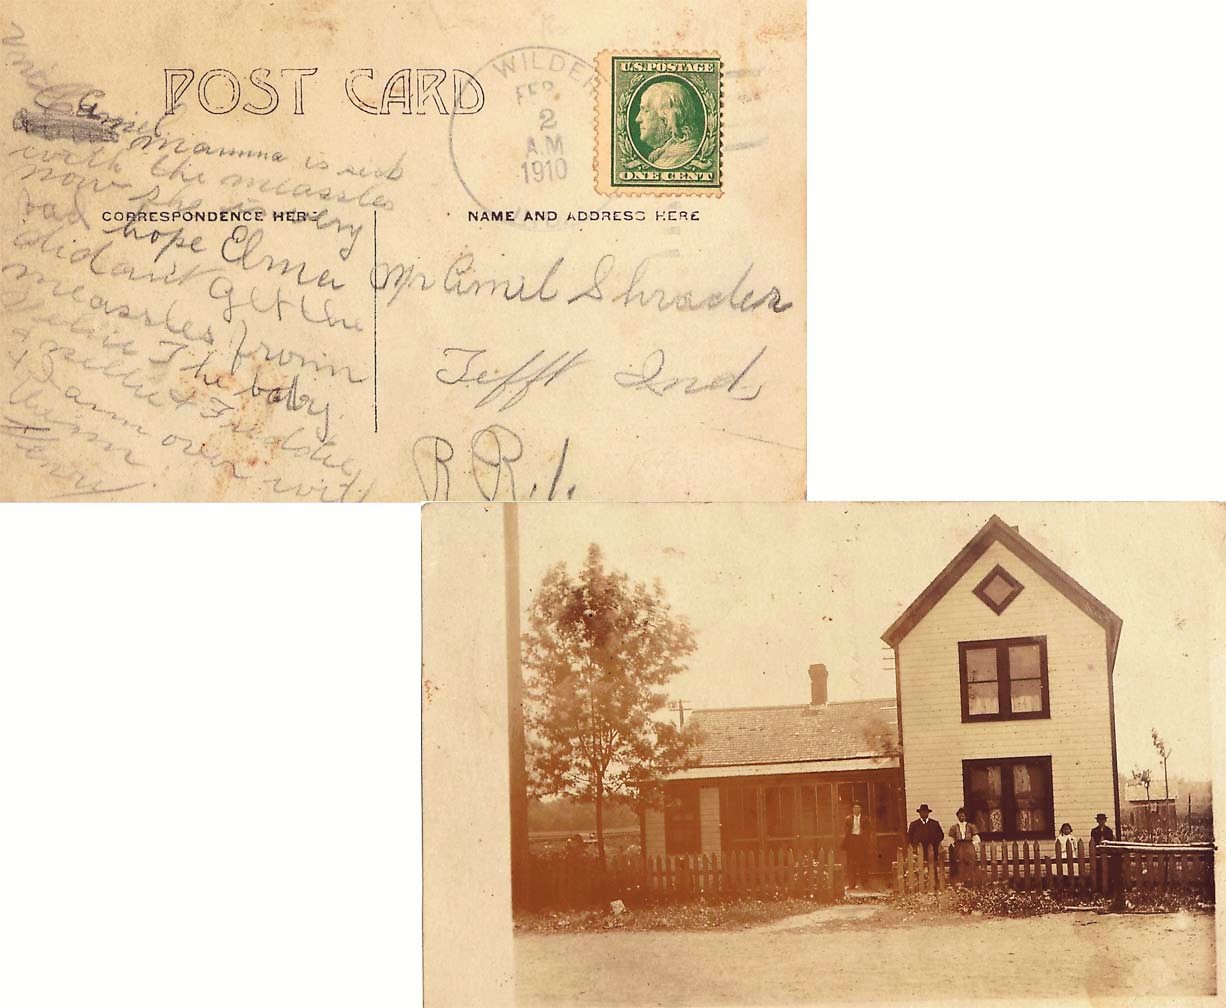 POST CARD
WILDER
FEB.
2
A.M
1910
U.S. POSTAGE
ONE CENT
CORRESPONDENCE HERE
NAME AND ADDRESS HERE
Amiel
Mamma is sick
with the meassles
now she is very
bad hope Elmer
didant get the
measles from
The baby
& Nellie & Freddie
& I am over with
them
Henry
Mr Amiel Shrader
Tefft Ind,
R R. 1.